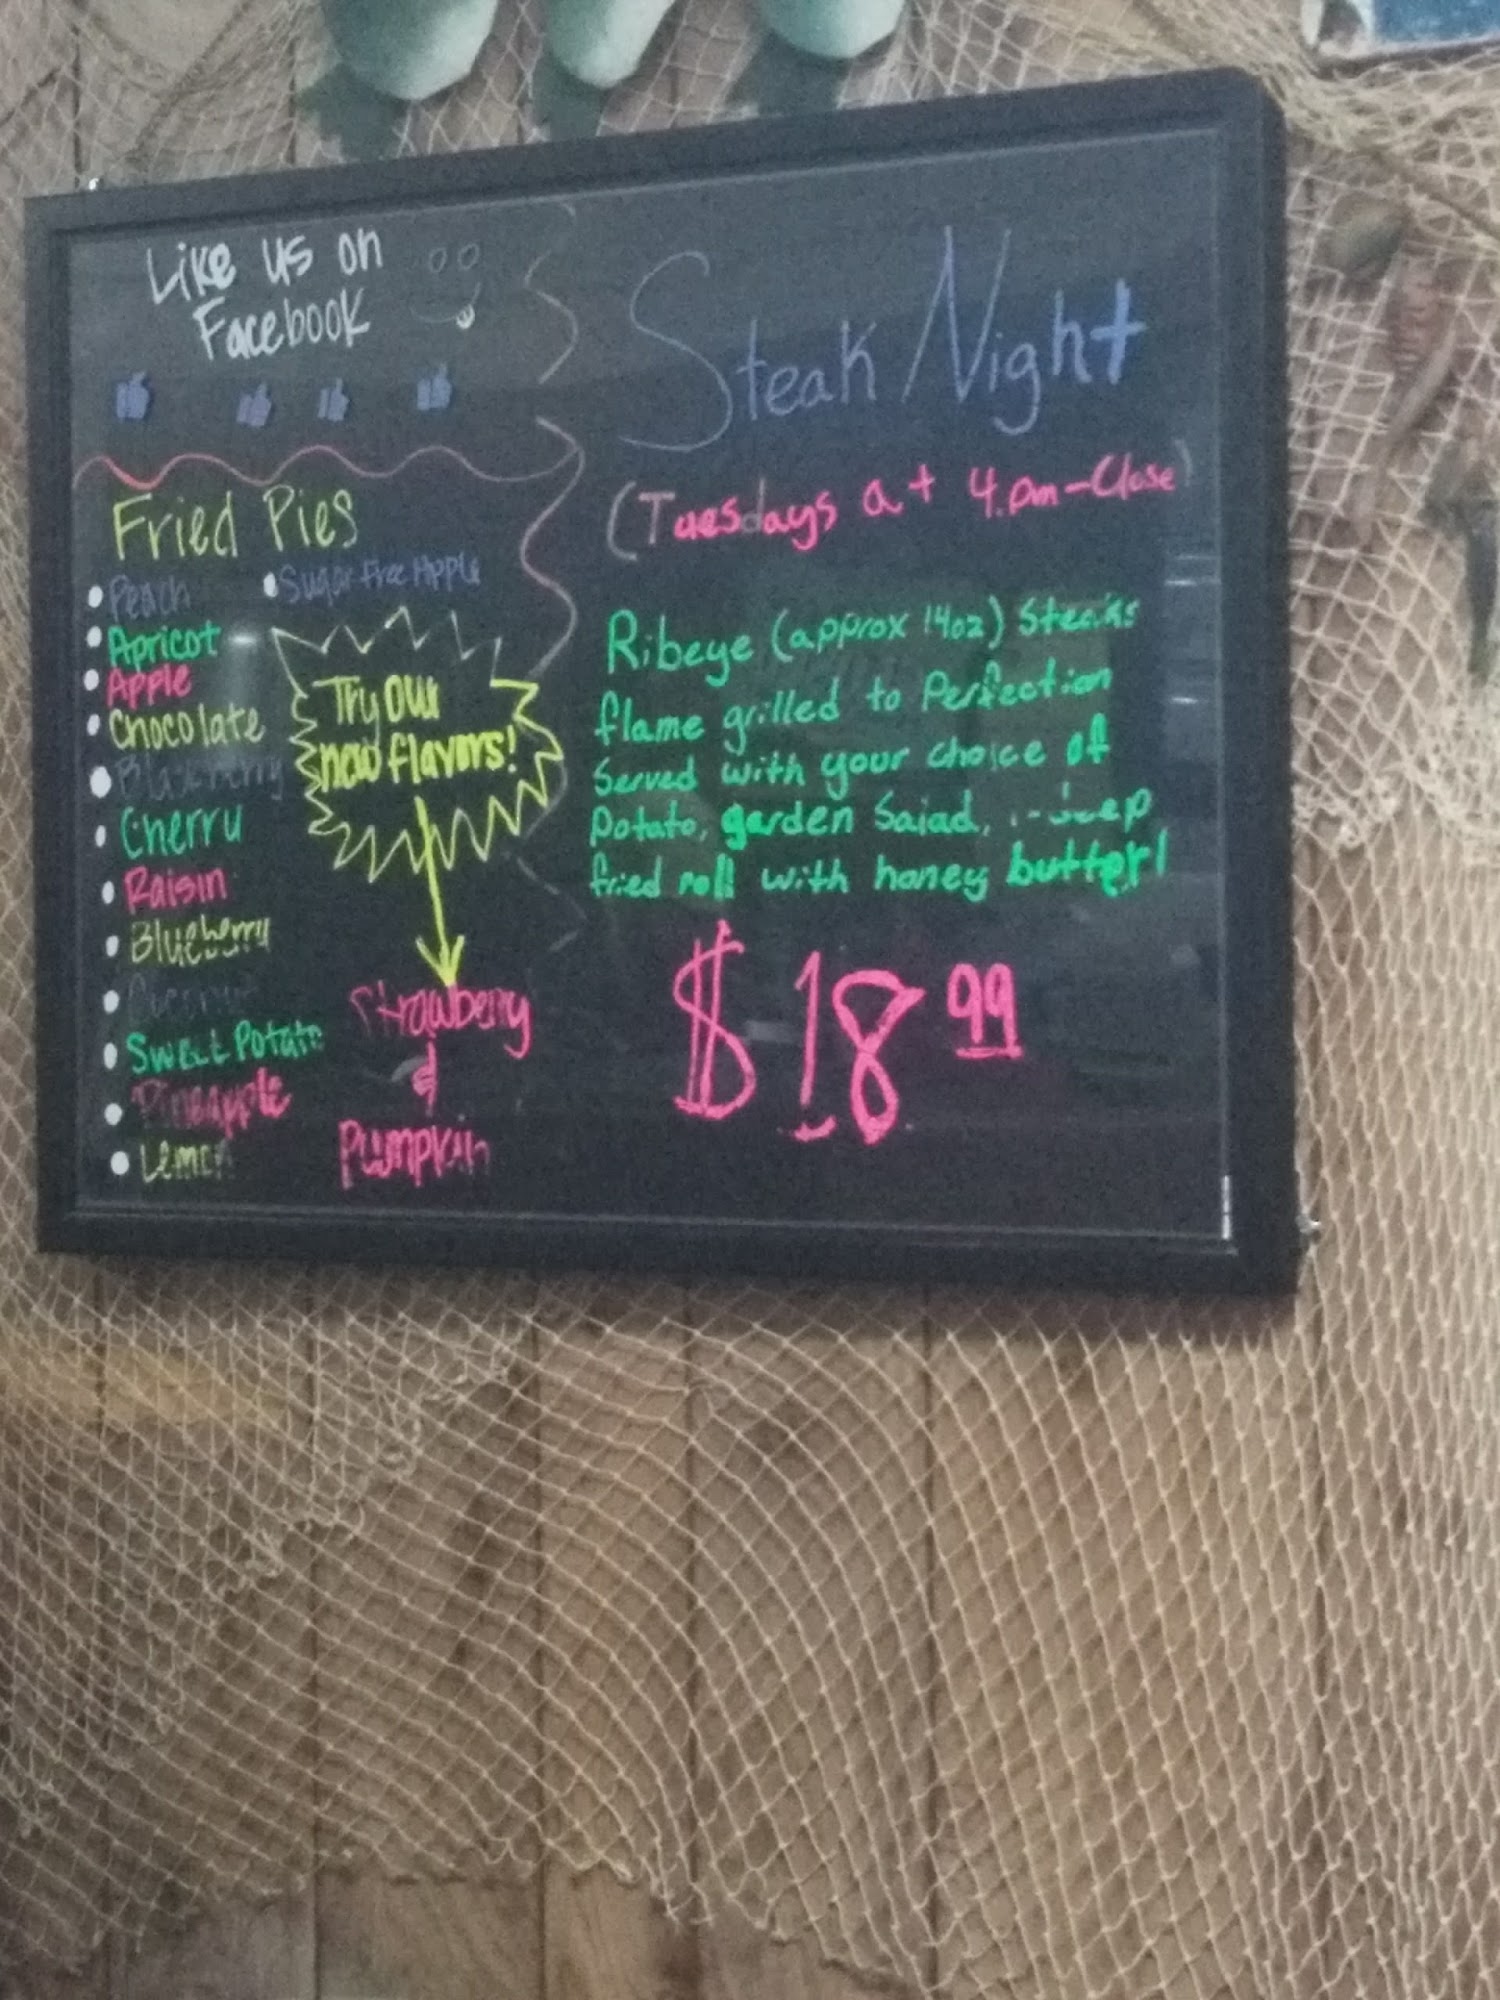 Like us on
Facebook
Fried Pies
Peach
Sugar Free Apple
Apricot
Apple
Chocolate
Blackberry
Cherry
Raisin
Blueberry
Coconut
Sweet Potato
Pineapple
Lemon
Try our
new flavors!
Strawberry
&
Pumpkin
Steak Night
(Tuesdays at 4.pm-Close)
Ribeye (approx 14oz) Steaks
flame grilled to Perfection
Served with your choice of
Potato, garden Salad,
fried roll with honey butter!
$18.99